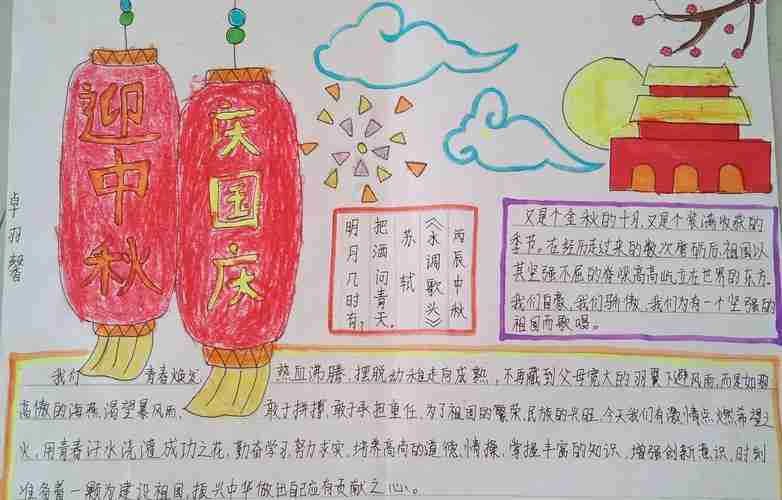 迎中秋
庆国庆
卓羽馨
丙辰中秋
《水调歌头》
苏轼
把酒问青天。
明月几时有,
又是个金秋的十月,又是个装满收获的
季节。在经历走过来的数次磨砺后,祖国以
其坚强不屈的脊梁高高屹立在世界的东方.
我们自豪,我们骄傲,我们为有一个坚强的
祖国而歌唱。
我们青春焕发热血沸腾,摆脱幼稚走向成熟,不再藏到父母宽大的羽翼下避风雨,而是如那
高傲的海燕渴望暴风雨,敢于拼搏,敢于承担重任,为了祖国的繁荣,民族的兴旺,今天我们有激情点燃希望之
火,用青春汗水浇灌成功之花,勤奋学习,努力求实,培养高尚的道德,情操,掌握丰富的知识,增强创新意识,时刻
准备着一颗为建设祖国,振兴中华做出自己应有贡献之心。